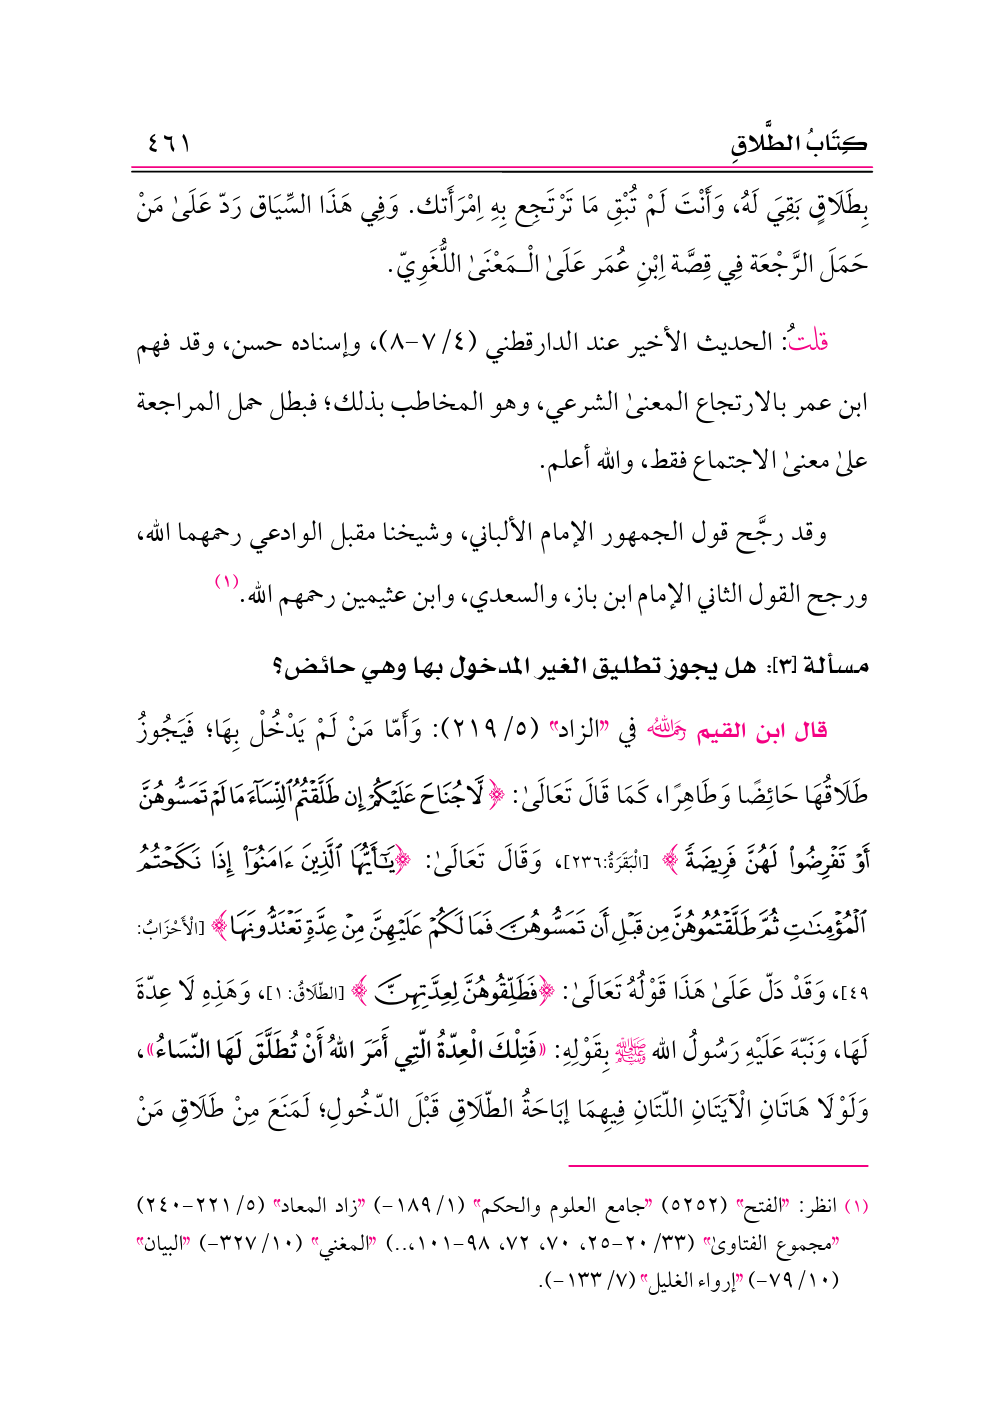 كِتَابُ الطَّلَاقِ ٤٦١
بِطَلَاقٍ بَقِيَ لَهُ، وَأَنْتَ لَمْ تُبْقِ مَا تَرْتَجِع بِهِ اِمْرَأَتك. وَفِي هَذَا السِّيَاق رَدّ عَلَىٰ مَنْ
حَمَلَ الرَّجْعَة فِي قِصَّة اِبْنِ عُمَر عَلَىٰ الْـمَعْنَىٰ اللُّغَوِيّ.
قلتُ: الحديث الأخير عند الدارقطني (٤/ ٧-٨)، وإسناده حسن، وقد فهم
ابن عمر بالارتجاع المعنىٰ الشرعي، وهو المخاطب بذلك؛ فبطل حمل المراجعة
علىٰ معنىٰ الاجتماع فقط، والله أعلم.
وقد رجَّح قول الجمهور الإمام الألباني، وشيخنا مقبل الوادعي رحمهما الله،
ورجح القول الثاني الإمام ابن باز، والسعدي، وابن عثيمين رحمهم الله.(١)
مسألة [٣]: هل يجوز تطليق الغير المدخول بها وهي حائض؟
قال ابن القيم رحمه الله في "الزاد" (٥/ ٢١٩): وَأَمّا مَنْ لَمْ يَدْخُلْ بِهَا؛ فَيَجُوزُ
طَلَاقُهَا حَائِضًا وَطَاهِرًا، كَمَا قَالَ تَعَالَىٰ: ﴿لَّا جُنَاحَ عَلَيْكُمْ إِن طَلَّقْتُمُ ٱلنِّسَآءَ مَا لَمْ تَمَسُّوهُنَّ
أَوْ تَفْرِضُوا۟ لَهُنَّ فَرِيضَةً﴾ [الْبَقَرَةُ:٢٣٦]، وَقَالَ تَعَالَىٰ: ﴿يَـٰٓأَيُّهَا ٱلَّذِينَ ءَامَنُوٓا۟ إِذَا نَكَحْتُمُ
ٱلْمُؤْمِنَـٰتِ ثُمَّ طَلَّقْتُمُوهُنَّ مِن قَبْلِ أَن تَمَسُّوهُنَّ فَمَا لَكُمْ عَلَيْهِنَّ مِنْ عِدَّةٍ تَعْتَدُّونَهَا﴾ [الْأَحْزَابُ:
٤٩]، وَقَدْ دَلّ عَلَىٰ هَذَا قَوْلُهُ تَعَالَىٰ: ﴿فَطَلِّقُوهُنَّ لِعِدَّتِهِنَّ﴾ [الطّلَاقُ: ١]، وَهَذِهِ لَا عِدّةَ
لَهَا، وَنَبّهَ عَلَيْهِ رَسُولُ الله ﷺ بِقَوْلِهِ: «فَتِلْكَ الْعِدّةُ الّتِي أَمَرَ اللهُ أَنْ تُطَلَّقَ لَهَا النّسَاءُ»،
وَلَوْلَا هَاتَانِ الْآيَتَانِ اللّتَانِ فِيهِمَا إبَاحَةُ الطّلَاقِ قَبْلَ الدّخُولِ؛ لَمَنَعَ مِنْ طَلَاقِ مَنْ
(١) انظر: "الفتح" (٥٢٥٢) "جامع العلوم والحكم" (١/ ١٨٩-) "زاد المعاد" (٥/ ٢٢١-٢٤٠)
"مجموع الفتاوىٰ" (٣٣/ ٢٠-٢٥، ٧٠، ٧٢، ٩٨-١٠١،..) "المغني" (١٠/ ٣٢٧-) "البيان"
(١٠/ ٧٩-) "إرواء الغليل" (٧/ ١٣٣-).